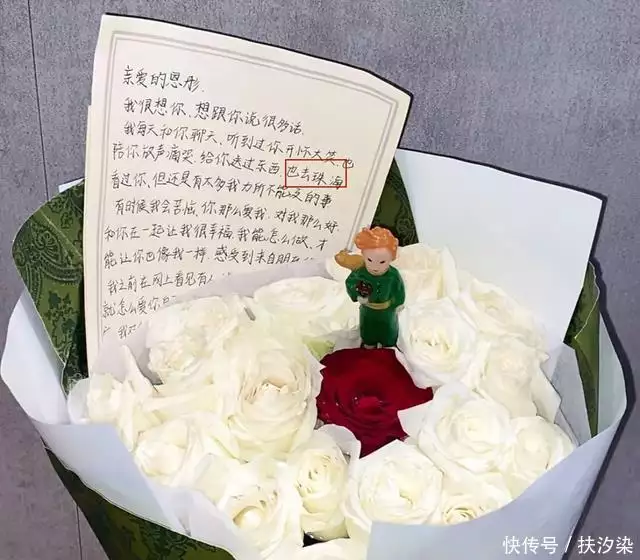 亲爱的恩彤.
我很想你、想跟你说很多话.
我每天和你聊天、听到过你开怀大笑、也
陪你放声痛哭、给你送过东西、也去珠海
看过你、但还是有太多我力所不能及的事
有时候我会苦恼、你那么爱我、对我那么好、
和你在一起让我很幸福、我能怎么做、才
能让你也像我一样、感受到来自朋友
我之前在网上看见有人
就怎么爱你
快传号 / 扶汐染